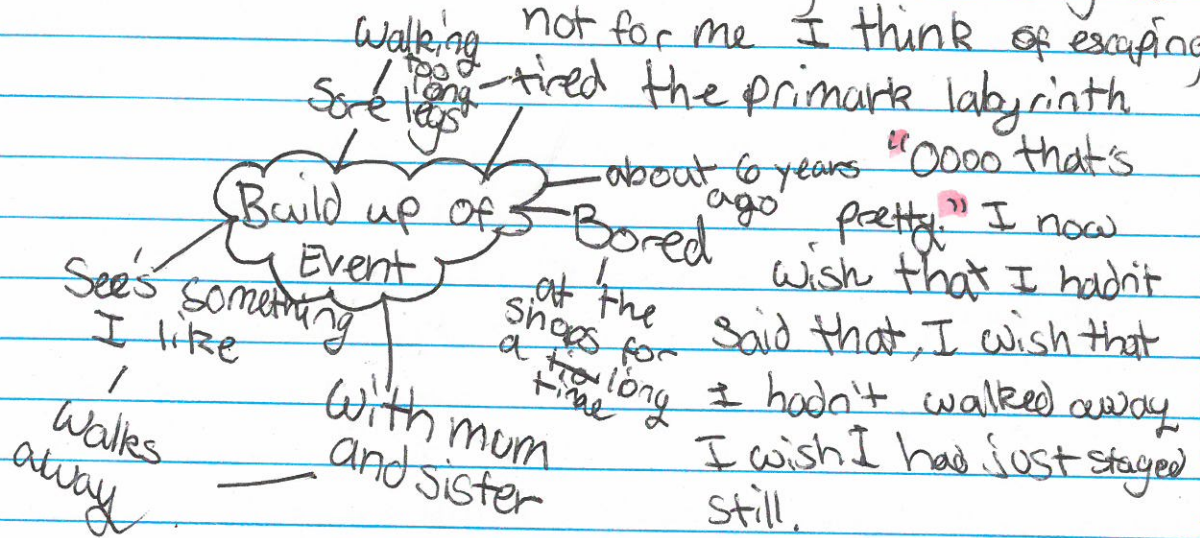 Walking
too
long
Sore legs
tired
Build up of
Event
about 6 years
ago
Bored
at the
shops for
a long
time
See's something
I like
Walks
away
With mum
and sister
not for me I think of escaping
the primark labyrinth
"Oooo that's
pretty." I now
wish that I hadn't
said that, I wish that
I hadn't walked away
I wish I had just stayed
still.